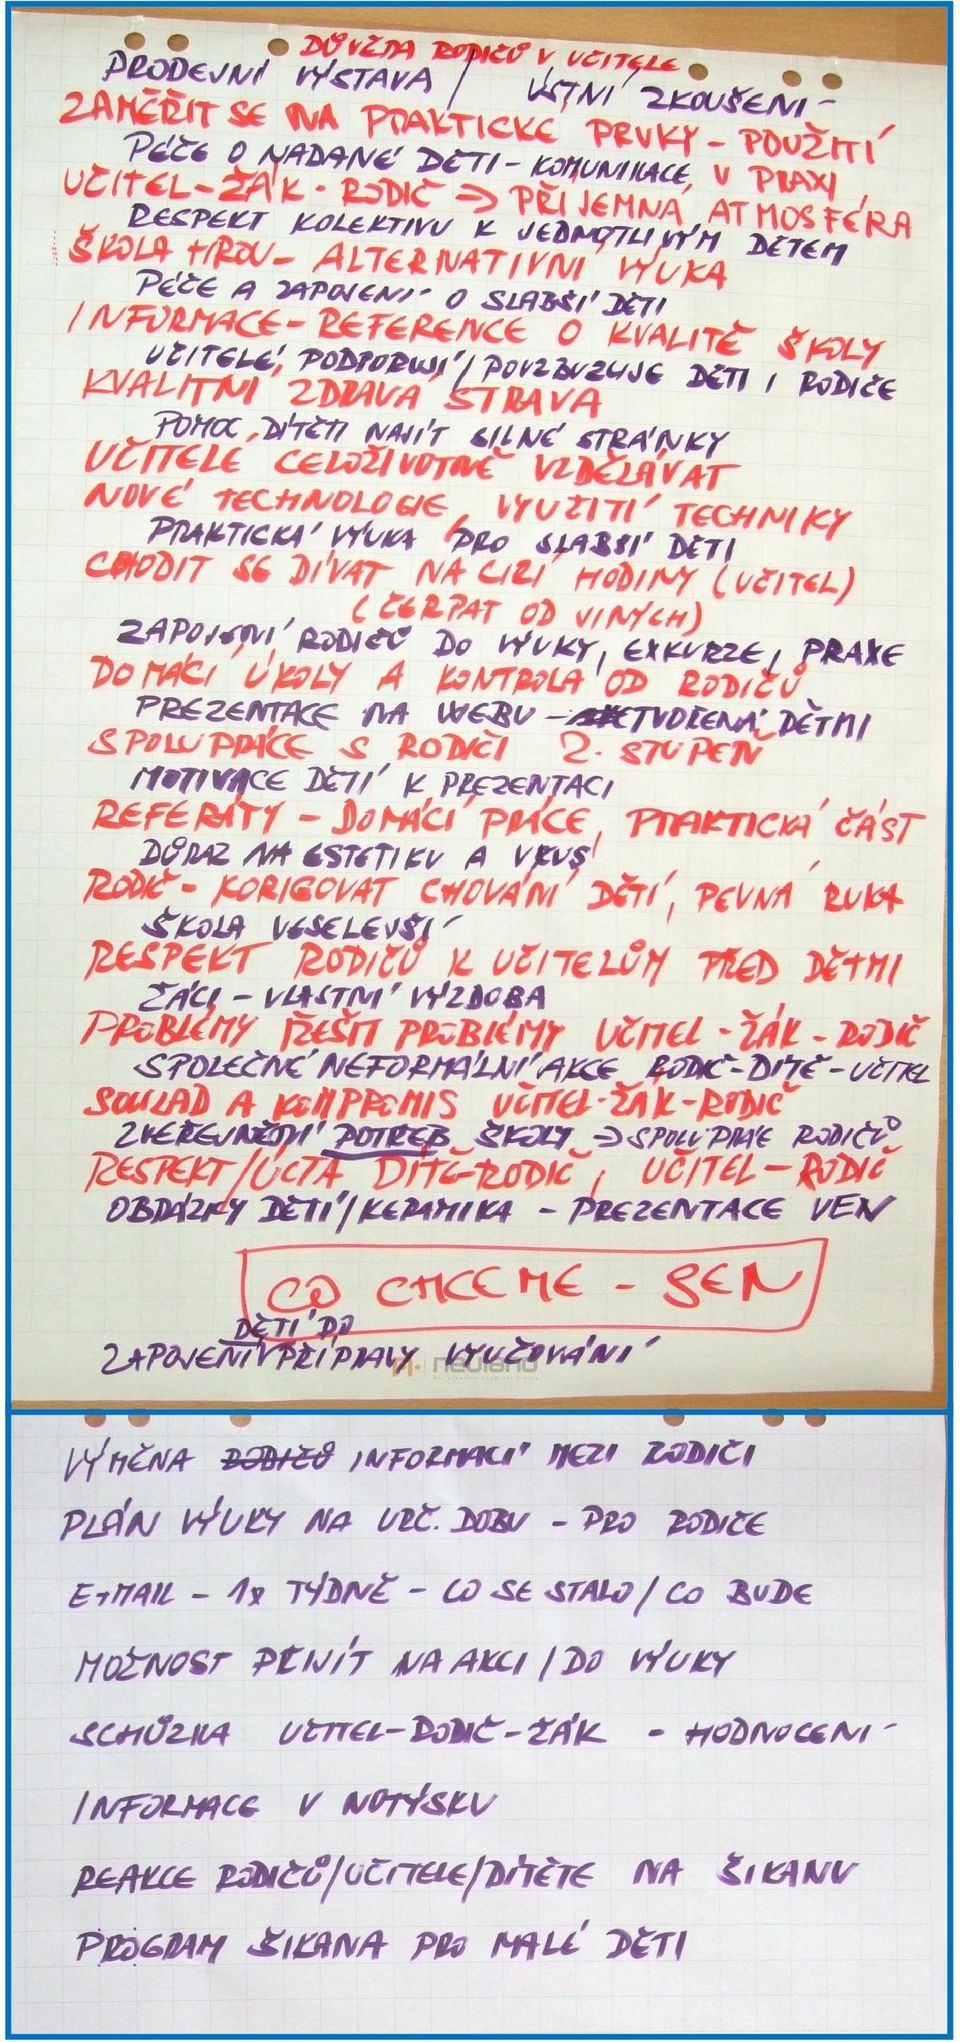 DŮVĚRA RODIČŮ V UČITELE
PRODEJNÍ VÝSTAVA / ÚSTNÍ ZKOUŠENÍ
ZAMĚŘIT SE NA PRAKTICKÉ PRVKY - POUŽITÍ
PÉČE O NADANÉ DĚTI - KOMUNIKACE, V PRAXI
UČITEL-ŽÁK-RODIČ => PŘÍJEMNÁ ATMOSFÉRA
RESPEKT KOLEKTIVU K JEDNOTLIVÝM DĚTEM
ŠKOLA HROU - ALTERNATIVNÍ VÝUKA
PÉČE A ZAPOJENÍ O SLABŠÍ DĚTI
INFORMACE - REFERENCE O KVALITĚ ŠKOLY
UČITELÉ, PODPORUJÍ / POVZBUZUJE DĚTI I RODIČE
KVALITNÍ ZDRAVÁ STRAVA
POMOC DÍTĚTI NAJÍT SILNÉ STRÁNKY
UČITELE CELOŽIVOTNĚ VZDĚLÁVAT
NOVÉ TECHNOLOGIE, VYUŽITÍ TECHNIKY
PRAKTICKÁ VÝUKA PRO SLABŠÍ DĚTI
CHODIT SE DÍVAT NA CIZÍ HODINY (UČITEL)
(ČERPAT OD JINÝCH)
ZAPOJENÍ RODIČŮ DO VÝUKY, EXKURZE, PRAXE
DOMÁCÍ ÚKOLY A KONTROLA OD RODIČŮ
PREZENTACE NA WEBU - VYTVOŘENÁ DĚTMI
SPOLUPRÁCE S RODIČI 2. STUPEŇ
MOTIVACE DĚTÍ K PREZENTACI
REFERÁTY - DOMÁCÍ PRÁCE, PRAKTICKÁ ČÁST
DŮRAZ NA ESTETIKU A VKUS
RODIČ - KORIGOVAT CHOVÁNÍ DĚTÍ, PEVNÁ RUKA
ŠKOLA VESELEJŠÍ
RESPEKT RODIČŮ K UČITELŮM PŘED DĚTMI
ŽÁCI - VLASTNÍ VÝZDOBA
PROBLÉMY ŘEŠIT PROBLÉMY UČITEL-ŽÁK-RODIČ
SPOLEČNÉ NEFORMÁLNÍ AKCE RODIČ-DÍTĚ-UČITEL
SOULAD A KOMPROMIS UČITEL-ŽÁK-RODIČ
ZVEŘEJNĚNÍ POTŘEB ŠKOLY => SPOLUPRÁCE RODIČŮ
RESPEKT/ÚCTA DÍTĚ-RODIČ, UČITEL-RODIČ
OBRÁZKY DĚTÍ/KERAMIKA - PREZENTACE VEN
CO CHCEME - SEN
DĚTÍ DO
ZAPOJENÍ PŘÍPRAVY VYUČOVÁNÍ
VÝMĚNA RODIČŮ INFORMACÍ MEZI RODIČI
PLÁN VÝUKY NA URČ. DOBU - PRO RODIČE
E-MAIL - 1x TÝDNĚ - CO SE STALO / CO BUDE
MOŽNOST PŘIJÍT NA AKCI / DO VÝUKY
SCHŮZKA UČITEL-RODIČ-ŽÁK - HODNOCENÍ
INFORMACE V NOTÝSKU
REAKCE RODIČŮ/UČITELE/DÍTĚTE NA ŠIKANU
PROGRAM ŠIKANA PRO MALÉ DĚTI